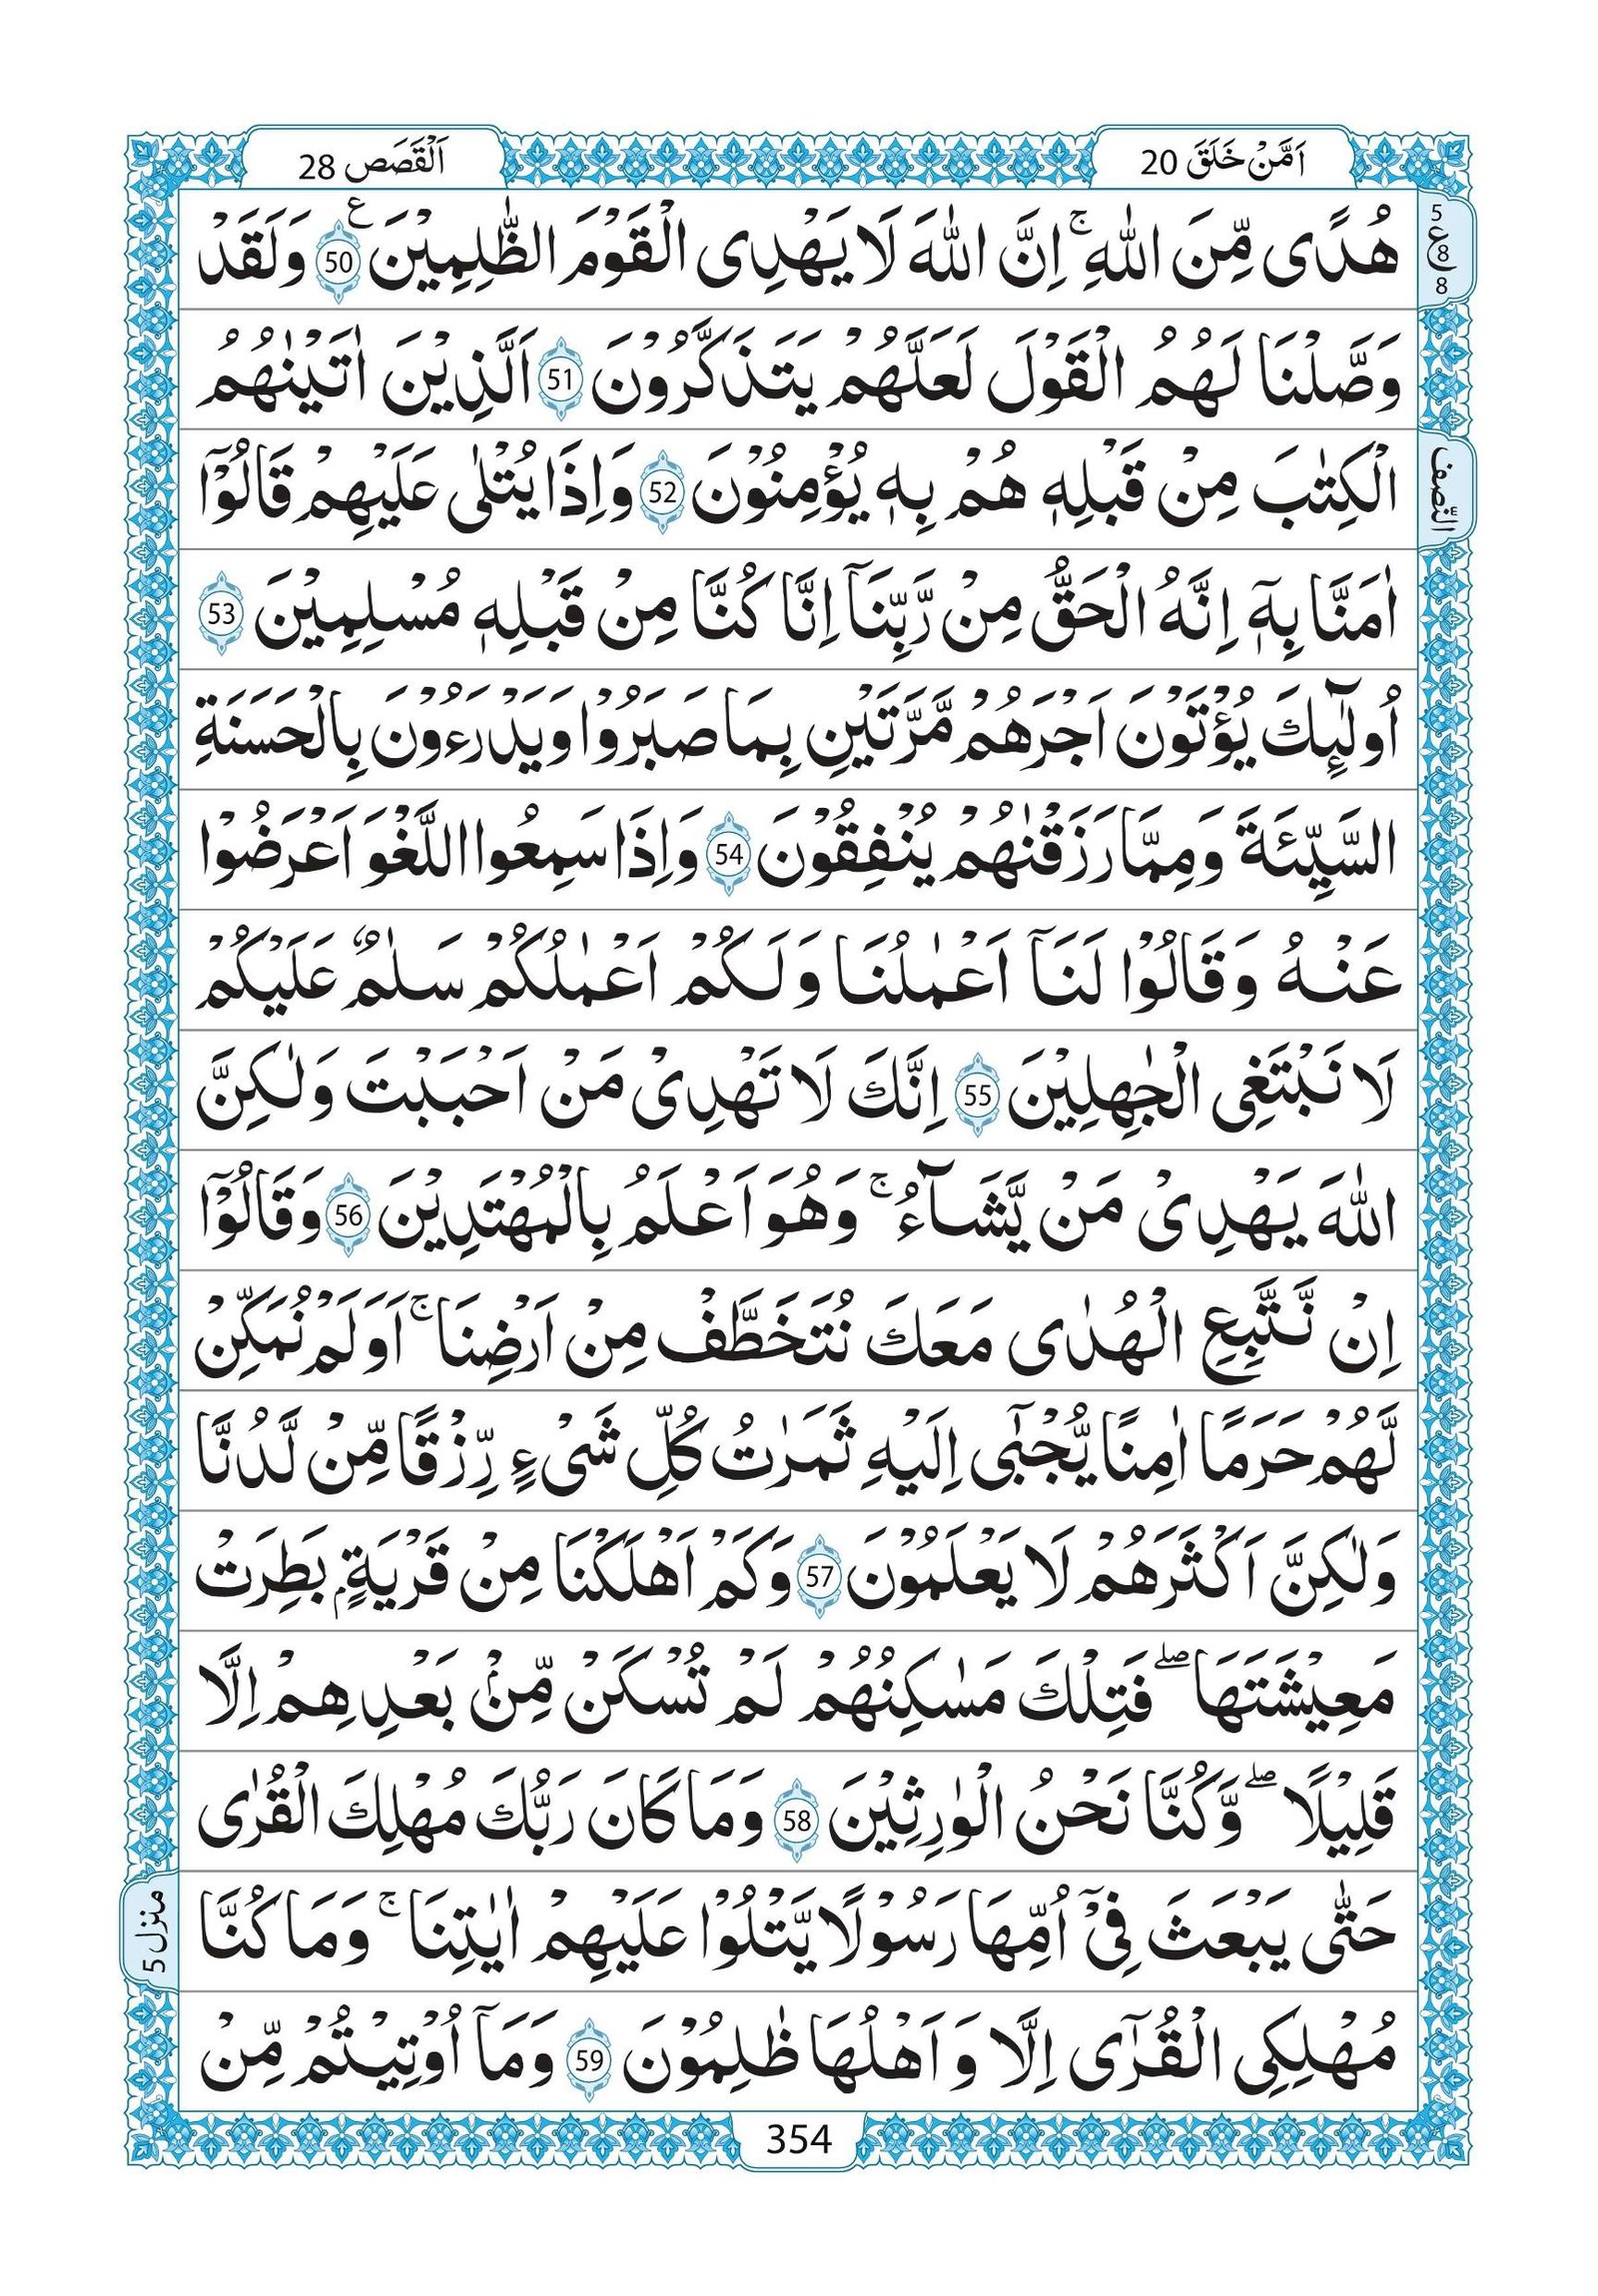 اَمَّنْ خَلَقَ 20
اَلْقَصَص 28
هُدًى مِّنَ اللّٰهِ ۚ اِنَّ اللّٰهَ لَا يَهْدِى الْقَوْمَ الظّٰلِمِيْنَ ۧ 50 وَلَقَدْ
وَصَّلْنَا لَهُمُ الْقَوْلَ لَعَلَّهُمْ يَتَذَكَّرُوْنَ 51 اَلَّذِيْنَ اٰتَيْنٰهُمُ
الْكِتٰبَ مِنْ قَبْلِهٖ هُمْ بِهٖ يُؤْمِنُوْنَ 52 وَاِذَا يُتْلٰى عَلَيْهِمْ قَالُوْٓا
اٰمَنَّا بِهٖٓ اِنَّهُ الْحَقُّ مِنْ رَّبِّنَآ اِنَّا كُنَّا مِنْ قَبْلِهٖ مُسْلِمِيْنَ 53
اُولٰٓئِكَ يُؤْتَوْنَ اَجْرَهُمْ مَّرَّتَيْنِ بِمَا صَبَرُوْا وَيَدْرَءُوْنَ بِالْحَسَنَةِ
السَّيِّئَةَ وَمِمَّا رَزَقْنٰهُمْ يُنْفِقُوْنَ 54 وَاِذَا سَمِعُوا اللَّغْوَ اَعْرَضُوْا
عَنْهُ وَقَالُوْا لَنَآ اَعْمٰلُنَا وَلَكُمْ اَعْمٰلُكُمْ سَلٰمٌ عَلَيْكُمْ
لَا نَبْتَغِى الْجٰهِلِيْنَ 55 اِنَّكَ لَا تَهْدِىْ مَنْ اَحْبَبْتَ وَلٰكِنَّ
اللّٰهَ يَهْدِىْ مَنْ يَّشَآءُ ۚ وَهُوَ اَعْلَمُ بِالْمُهْتَدِيْنَ 56 وَقَالُوْٓا
اِنْ نَّتَّبِعِ الْهُدٰى مَعَكَ نُتَخَطَّفْ مِنْ اَرْضِنَا ۚ اَوَلَمْ نُمَكِّنْ
لَّهُمْ حَرَمًا اٰمِنًا يُّجْبٰٓى اِلَيْهِ ثَمَرٰتُ كُلِّ شَىْءٍ رِّزْقًا مِّنْ لَّدُنَّا
وَلٰكِنَّ اَكْثَرَهُمْ لَا يَعْلَمُوْنَ 57 وَكَمْ اَهْلَكْنَا مِنْ قَرْيَةٍۭ بَطِرَتْ
مَعِيْشَتَهَا ۖ فَتِلْكَ مَسٰكِنُهُمْ لَمْ تُسْكَنْ مِّنْۢ بَعْدِهِمْ اِلَّا
قَلِيْلًا ۖ وَّكُنَّا نَحْنُ الْوٰرِثِيْنَ 58 وَمَا كَانَ رَبُّكَ مُهْلِكَ الْقُرٰى
حَتّٰى يَبْعَثَ فِىْٓ اُمِّهَا رَسُوْلًا يَّتْلُوْا عَلَيْهِمْ اٰيٰتِنَا ۚ وَمَا كُنَّا
مُهْلِكِى الْقُرٰٓى اِلَّا وَاَهْلُهَا ظٰلِمُوْنَ 59 وَمَآ اُوْتِيْتُمْ مِّنْ
5
ع 8
8
النّصف
منزل 5
354